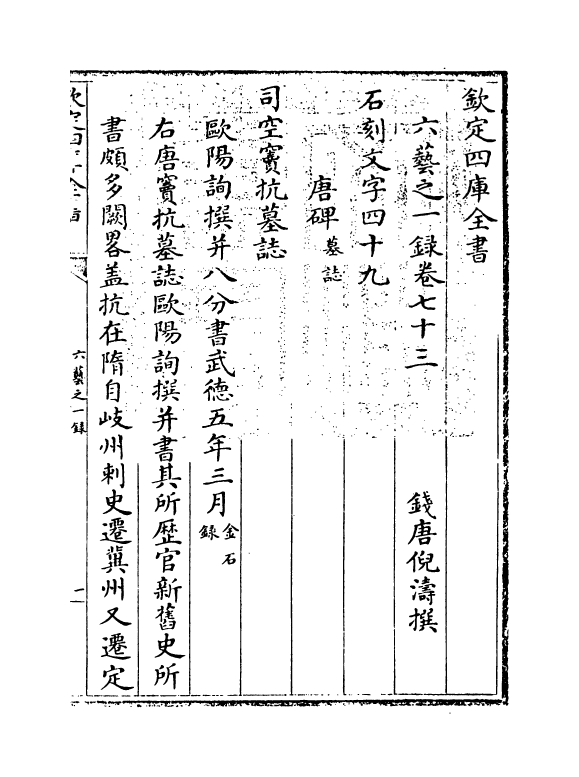 欽定四庫全書
六藝之一録卷七十三
錢唐倪濤撰
石刻文字四十九
唐碑墓誌
司空竇抗墓誌
歐陽詢撰并八分書武徳五年三月金石録
右唐竇抗墓誌歐陽詢撰并書其所歴官新舊史所
書頗多闕畧盖抗在隋自岐州刺史遷冀州又遷定
六藝之一録
一